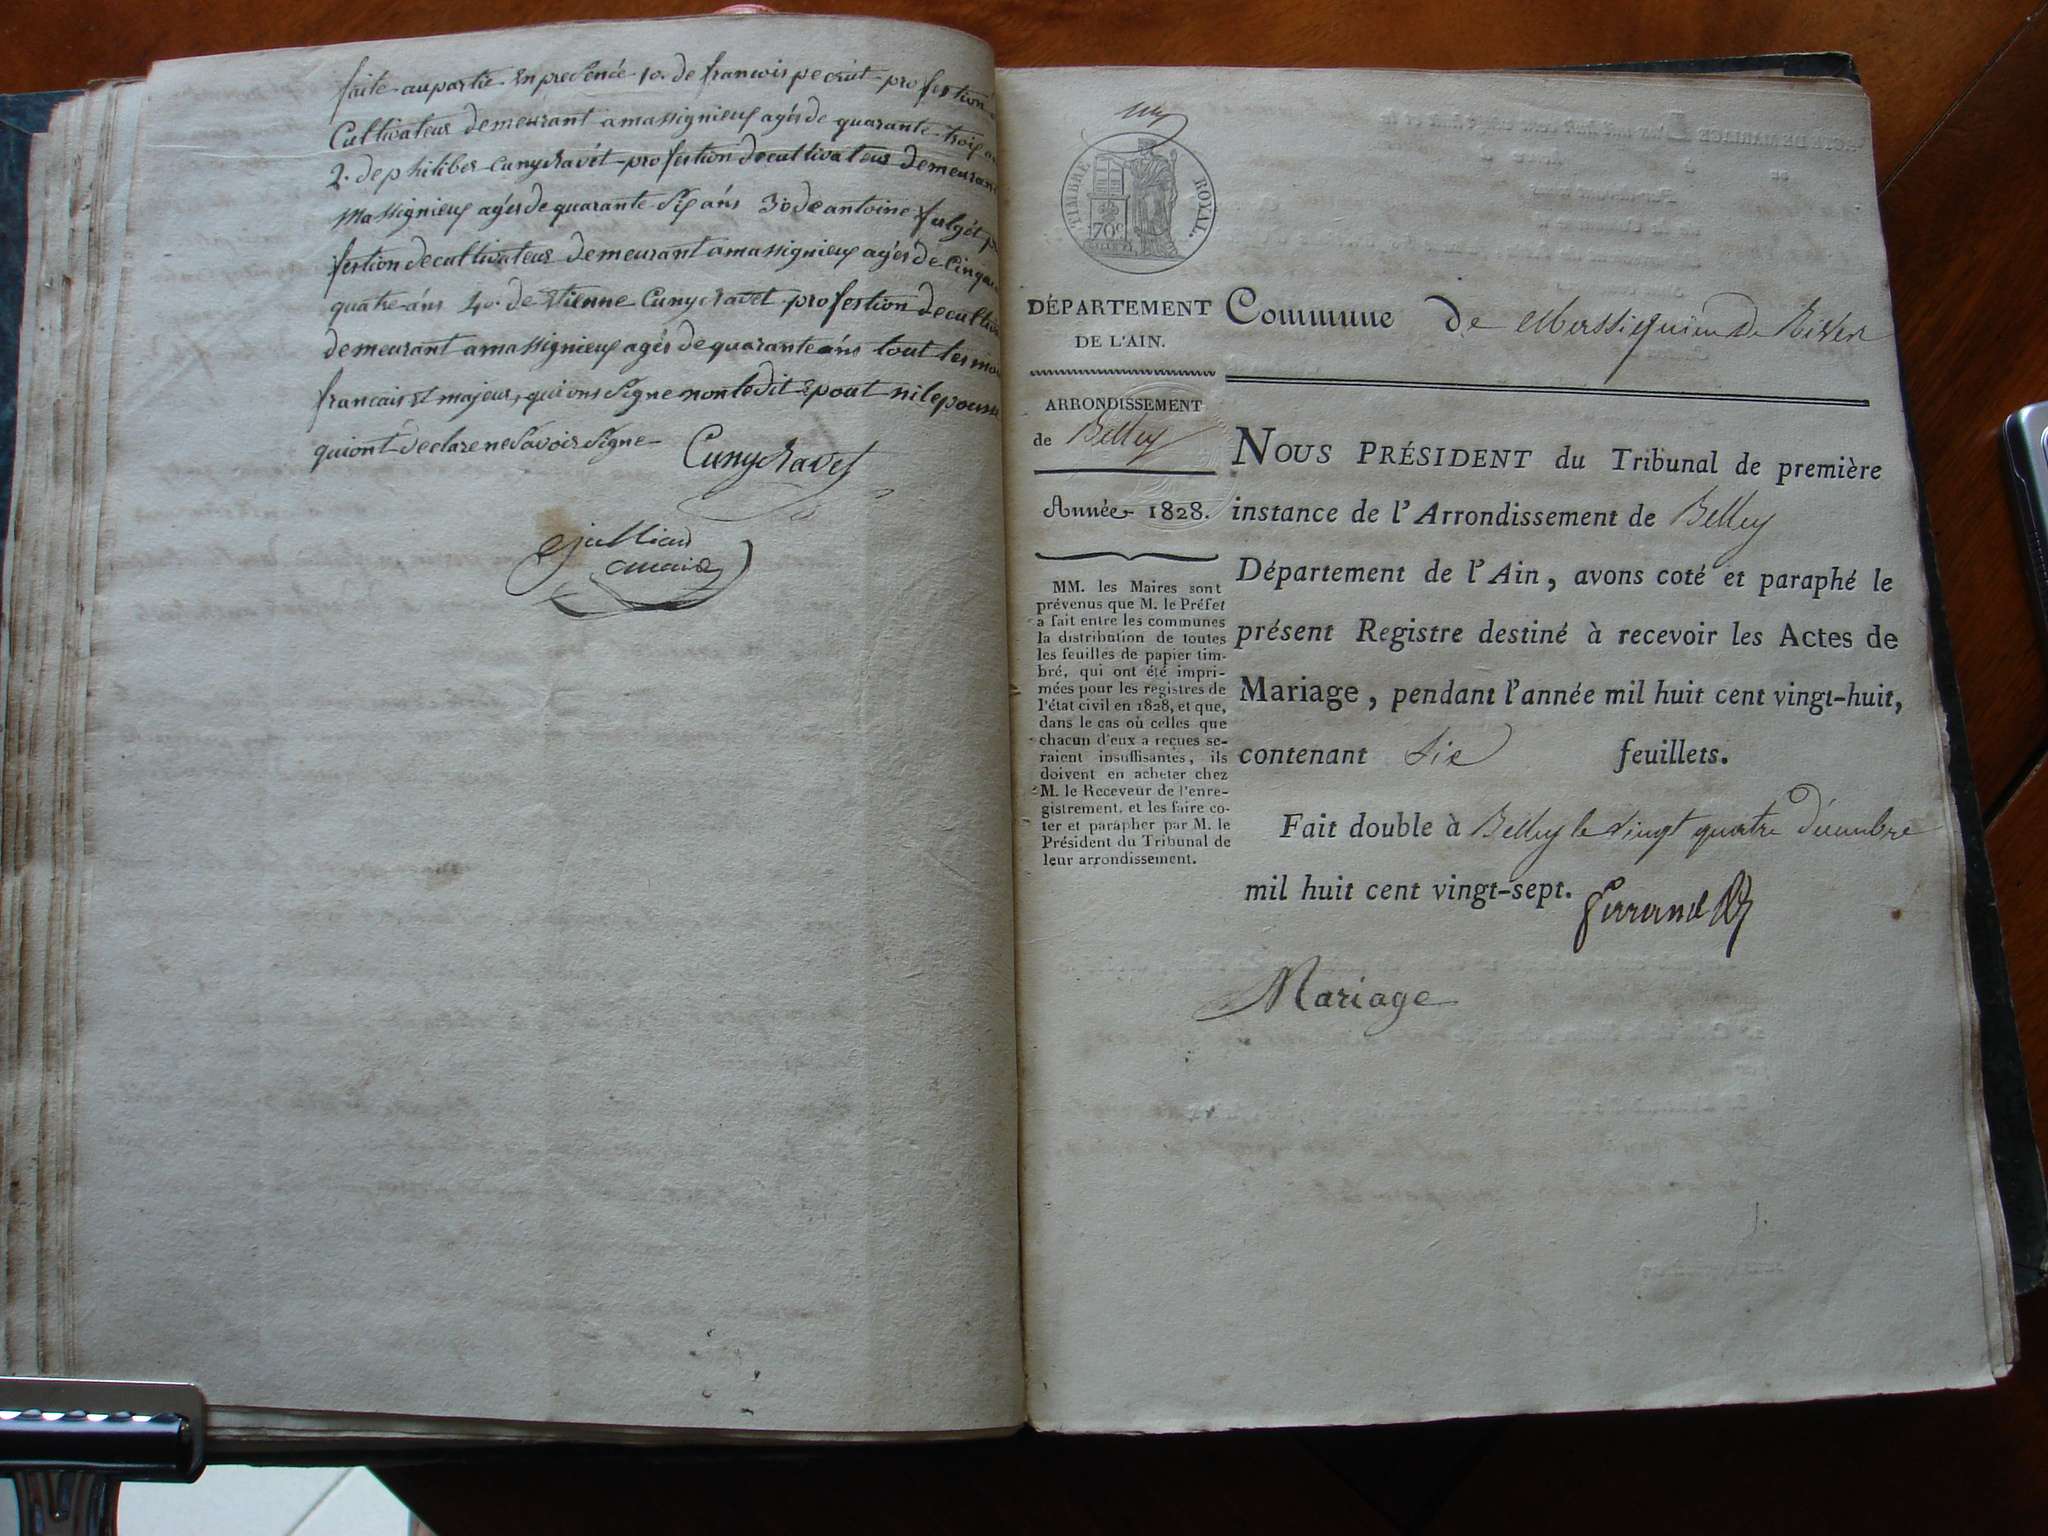 faite au partie En presénce 1o. de francois pe crút profession
Cultivateur demeurant a massignieux agés de quarante trois
2. de philiber Cuny Ravét profestion de cultivateur demeurant
Massignieux agés de quarante Six áns 3o de antoine
festion de cultivateur demeurant a massignieux agés de Cinqua
quatre áns 4o. de Etienne Cuny Ravet profestion de cultiv
demeurant a massignieux agés de quarante áns tout les
francais Et majeur, qui ons Signe non le dit Epout ni lepouse
qui ont declare ne Savoir Signe
Cuny Ravet
Maire
TIMBRE ROYAL.
70c
DÉPARTEMENT
DE L'AIN.
ARRONDISSEMENT
de Belley
Année 1828.
MM. les Maires sont
prévenus que M. le Préfet
a fait entre les communes
la distribution de toutes
les feuilles de papier tim-
bré, qui ont été impri-
mées pour les registres de
l'état civil en 1828, et que,
dans le cas où celles que
chacun d'eux a reçues se-
raient insuffisantes, ils
doivent en acheter chez
M. le Receveur de l'enre-
gistrement, et les faire co-
ter et parapher par M. le
Président du Tribunal de
leur arrondissement.
Commune de Massignieu De Rives
NOUS PRÉSIDENT du Tribunal de première
instance de l'Arrondissement de Belley
Département de l'Ain, avons coté et paraphé le
présent Registre destiné à recevoir les Actes de
Mariage, pendant l'année mil huit cent vingt-huit,
contenant Six feuillets.
Fait double à Belley le vingt quatre décembre
mil huit cent vingt-sept.
Mariage